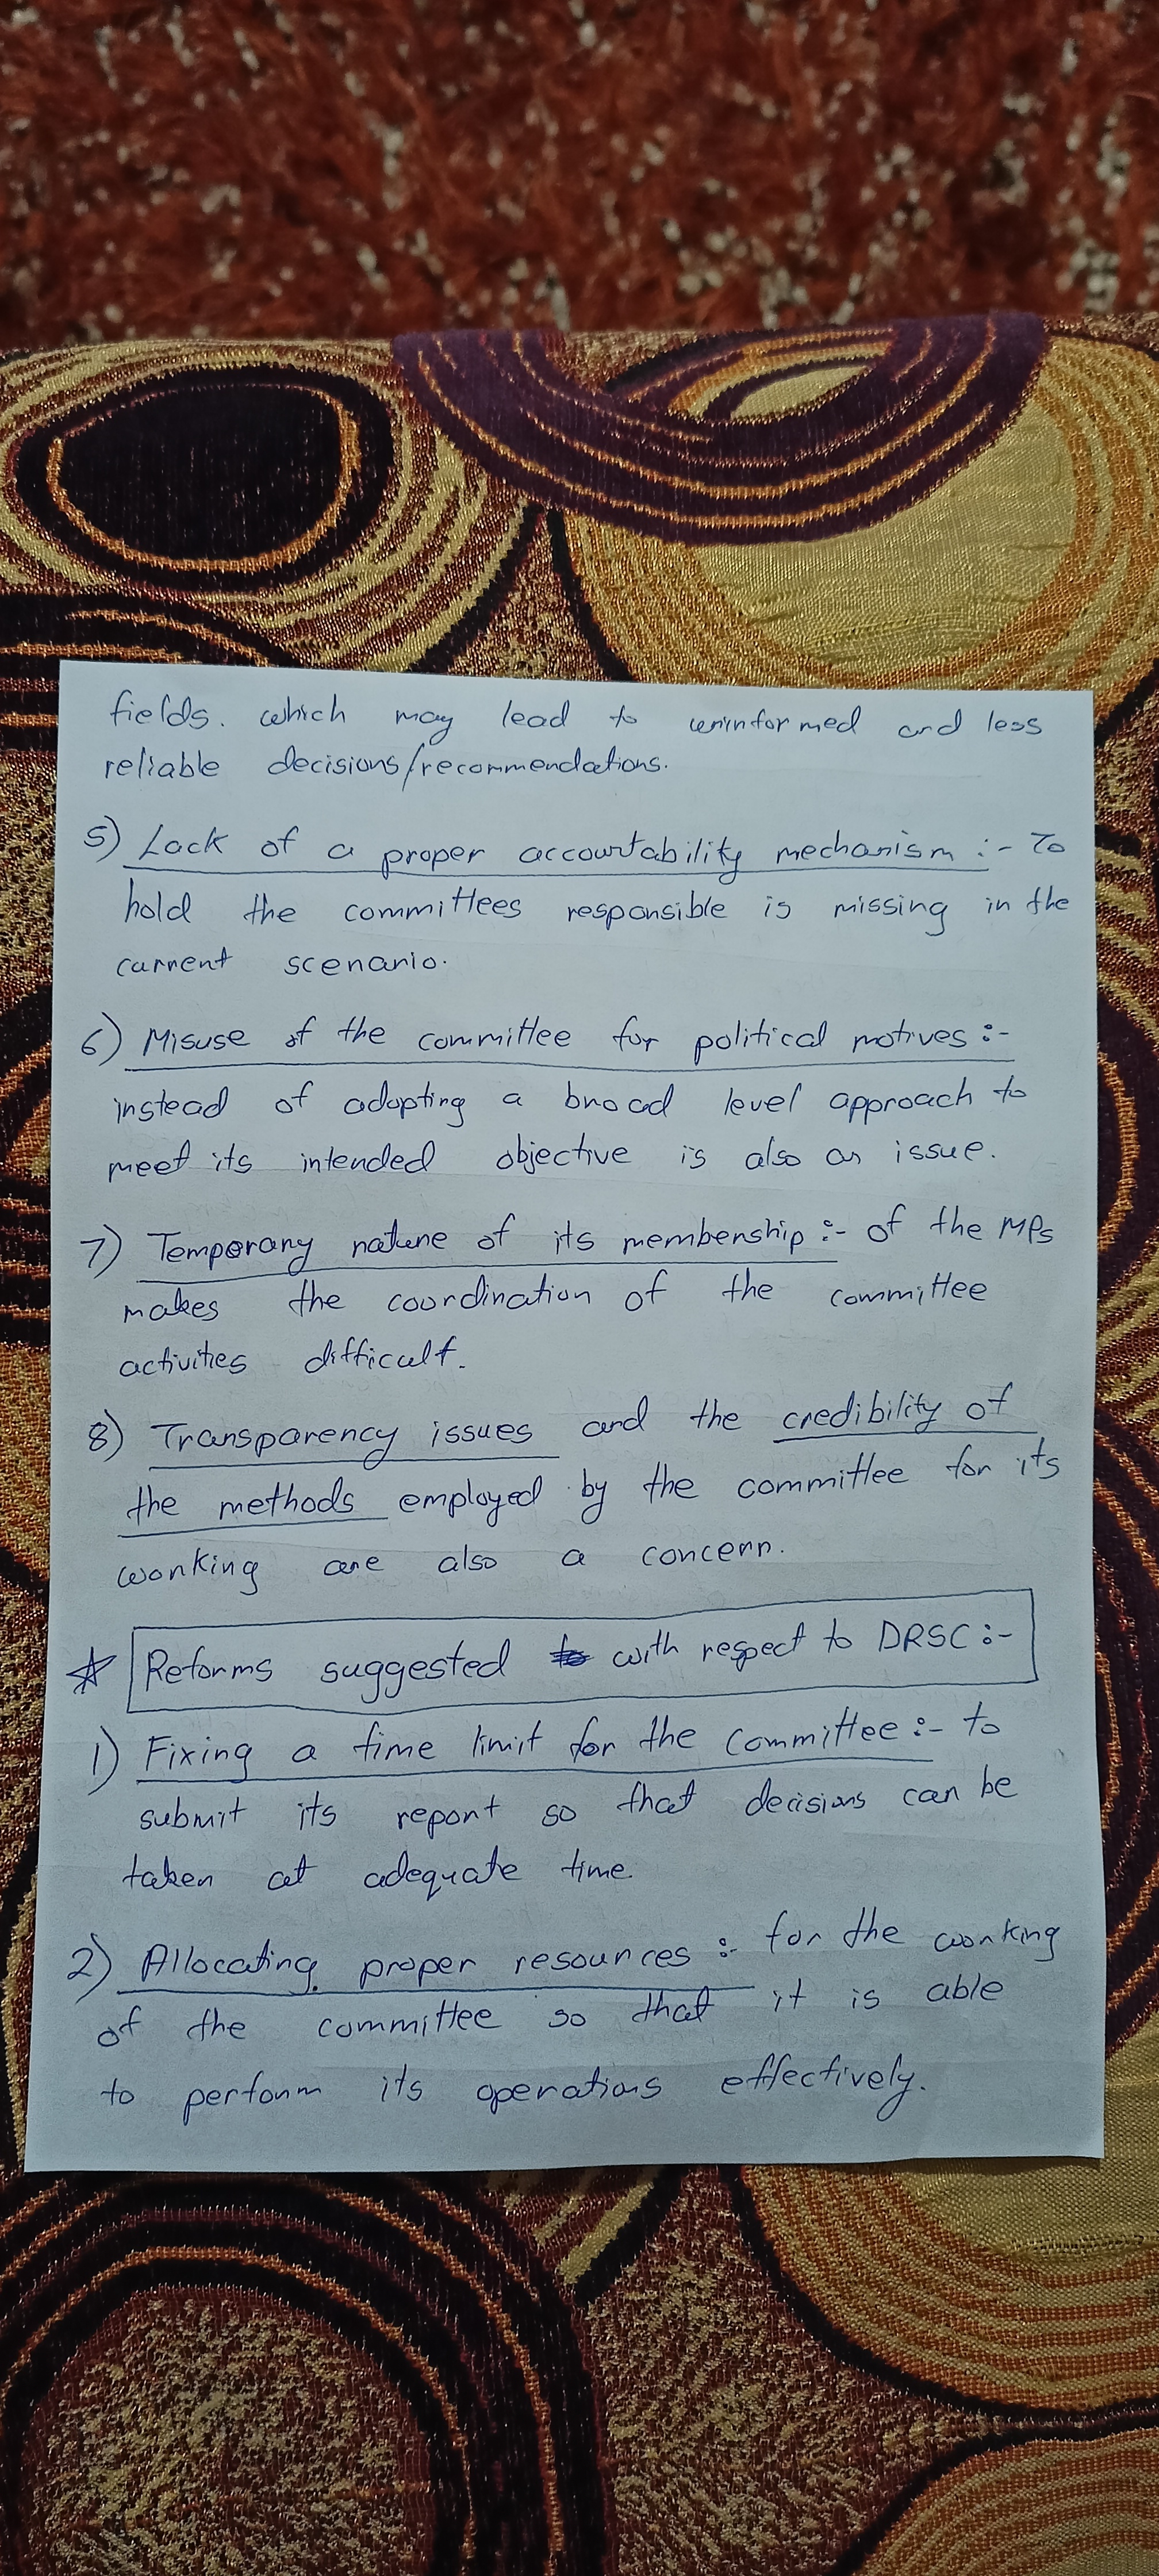 fields. which may lead to uninformed and less
reliable decisions/recommendations.
5) Lack of a proper accountability mechanism :- To
hold the committees responsible is missing in the
current scenario.
6) Misuse of the committee for political motives :-
instead of adopting a broad level approach to
meet its intended objective is also an issue.
7) Temporary nature of its membership :- of the MPs
makes the coordination of the committee
activities difficult.
8) Transparency issues and the credibility of
the methods employed by the committee for its
working are also a concern.
☆ Reforms suggested with respect to DRSC :-
1) Fixing a time limit for the Committee :- to
submit its report so that decisions can be
taken at adequate time.
2) Allocating proper resources :- for the working
of the committee so that it is able
to perform its operations effectively.